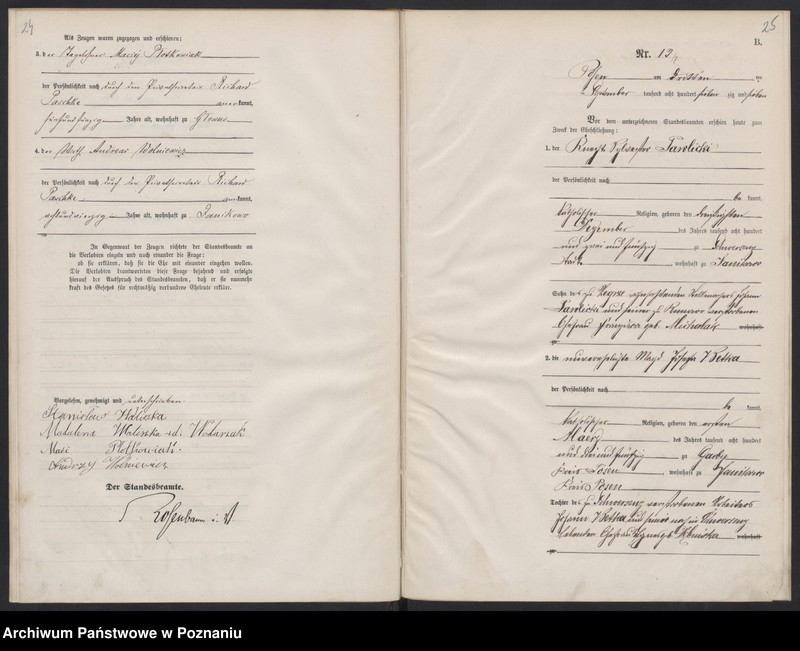 24
Als Zeugen waren zugezogen und erschienen:
3. der Tagelöhner Maciej Plotkowiak
der Persönlichkeit nach durch den Privatsecretair Richard
Paschke anerkannt,
fünfundfünfzig Jahre alt, wohnhaft zu
4. der Wirth Andreas Wolniewicz
der Persönlichkeit nach durch den Privatsecretair Richard
Paschke anerkannt,
achtundvierzig Jahre alt, wohnhaft zu Janikowo
In Gegenwart der Zeugen richtete der Standesbeamte an
die Verlobten einzeln und nach einander die Frage:
ob sie erklären, daß sie die Ehe mit einander eingehen wollen.
Die Verlobten beantworteten diese Frage bejahend und erfolgte
hierauf der Ausspruch des Standesbeamten, daß er sie nunmehr
kraft des Gesetzes für rechtmäßig verbundene Eheleute erkläre.
Vorgelesen, genehmigt und unterschrieben
Stanislaw
Madalena
Maci Plotkowiak
Andrzy Wolniewicz
Der Standesbeamte.
Rosenbaum i. V
25
B.
Nr. 12
Posen am dritten
Dezember tausend acht hundert sieben zig und sieben
Vor dem unterzeichneten Standesbeamten erschien heute zum
Zweck der Eheschließung:
1. der Knecht Sylvester Pawlicki
der Persönlichkeit nach
be kannt,
katholischer Religion, geboren den dreißigsten
Dezember des Jahres tausend acht hundert
und zwei und fünfzig zu Schwersenz
wohnhaft zu Janikowo
Sohn des zu
Pawlicki und seiner zu verstorbenen
Ehefrau Franziska geb. Michalak wohnhaft
zu
2. die unverehelichte Magd Josefa Betka
der Persönlichkeit nach
be kannt,
katholischer Religion, geboren den ersten
Maerz des Jahres tausend acht hundert
und drei und fünfzig zu Garby
Kreis Posen, wohnhaft zu Janikowo
Kreis Posen
Tochter des zu Schwersenz verstorbenen Arbeiters
Johann Betka und seiner noch in Schwersenz
lebenden Ehefrau wohnhaft
zu
Archiwum Państwowe w Poznaniu